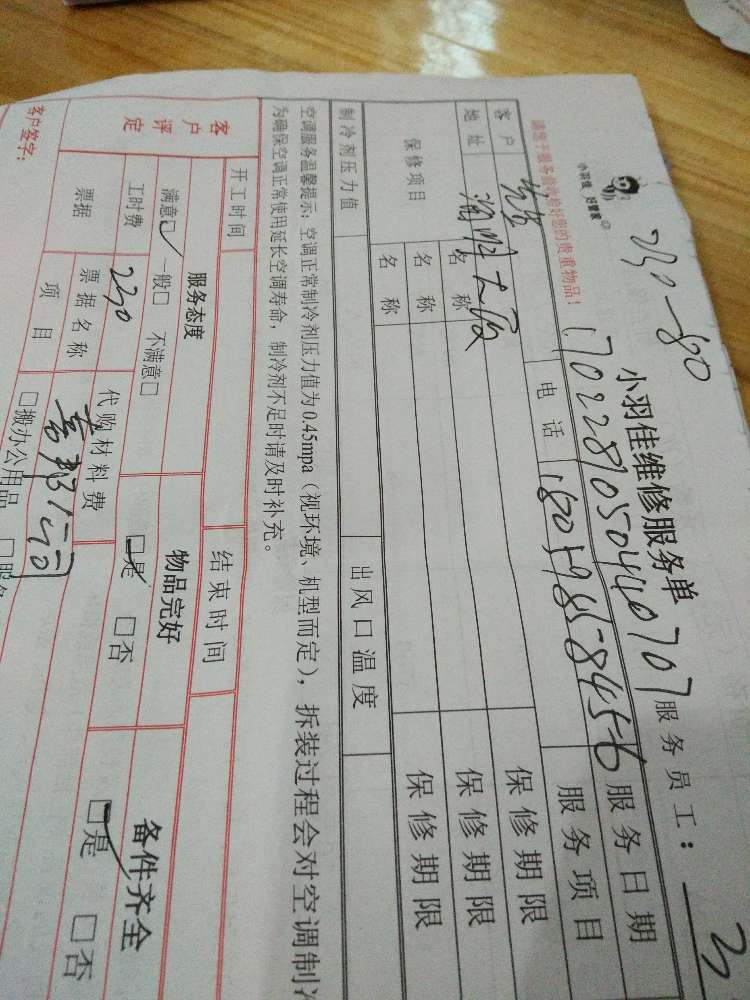 230-80
小羽佳 好管家
小羽佳维修服务单
服务员工:
1702281050440707
服务日期
请您于服务前收检好您的贵重物品!
客户
电话
18059858456
服务项目
地址
大厦
保修项目
名称
保修期限
名称
保修期限
名称
保修期限
制冷剂压力值
出风口温度
空调服务温馨提示:空调正常制冷剂压力值为0.45mpa(视环境、机型而定),拆装过程会对空调制冷
为确保空调正常使用延长空调寿命,制冷剂不足时请及时补充。
开工时间
结束时间
客户评定
服务态度
物品完好
备件齐全
满意☑ 一般□ 不满意□
☑是 □否
☑是 □否
工时费
230
代购材料费
票据
票据名称
项目
□搬办公用品
客户签字: